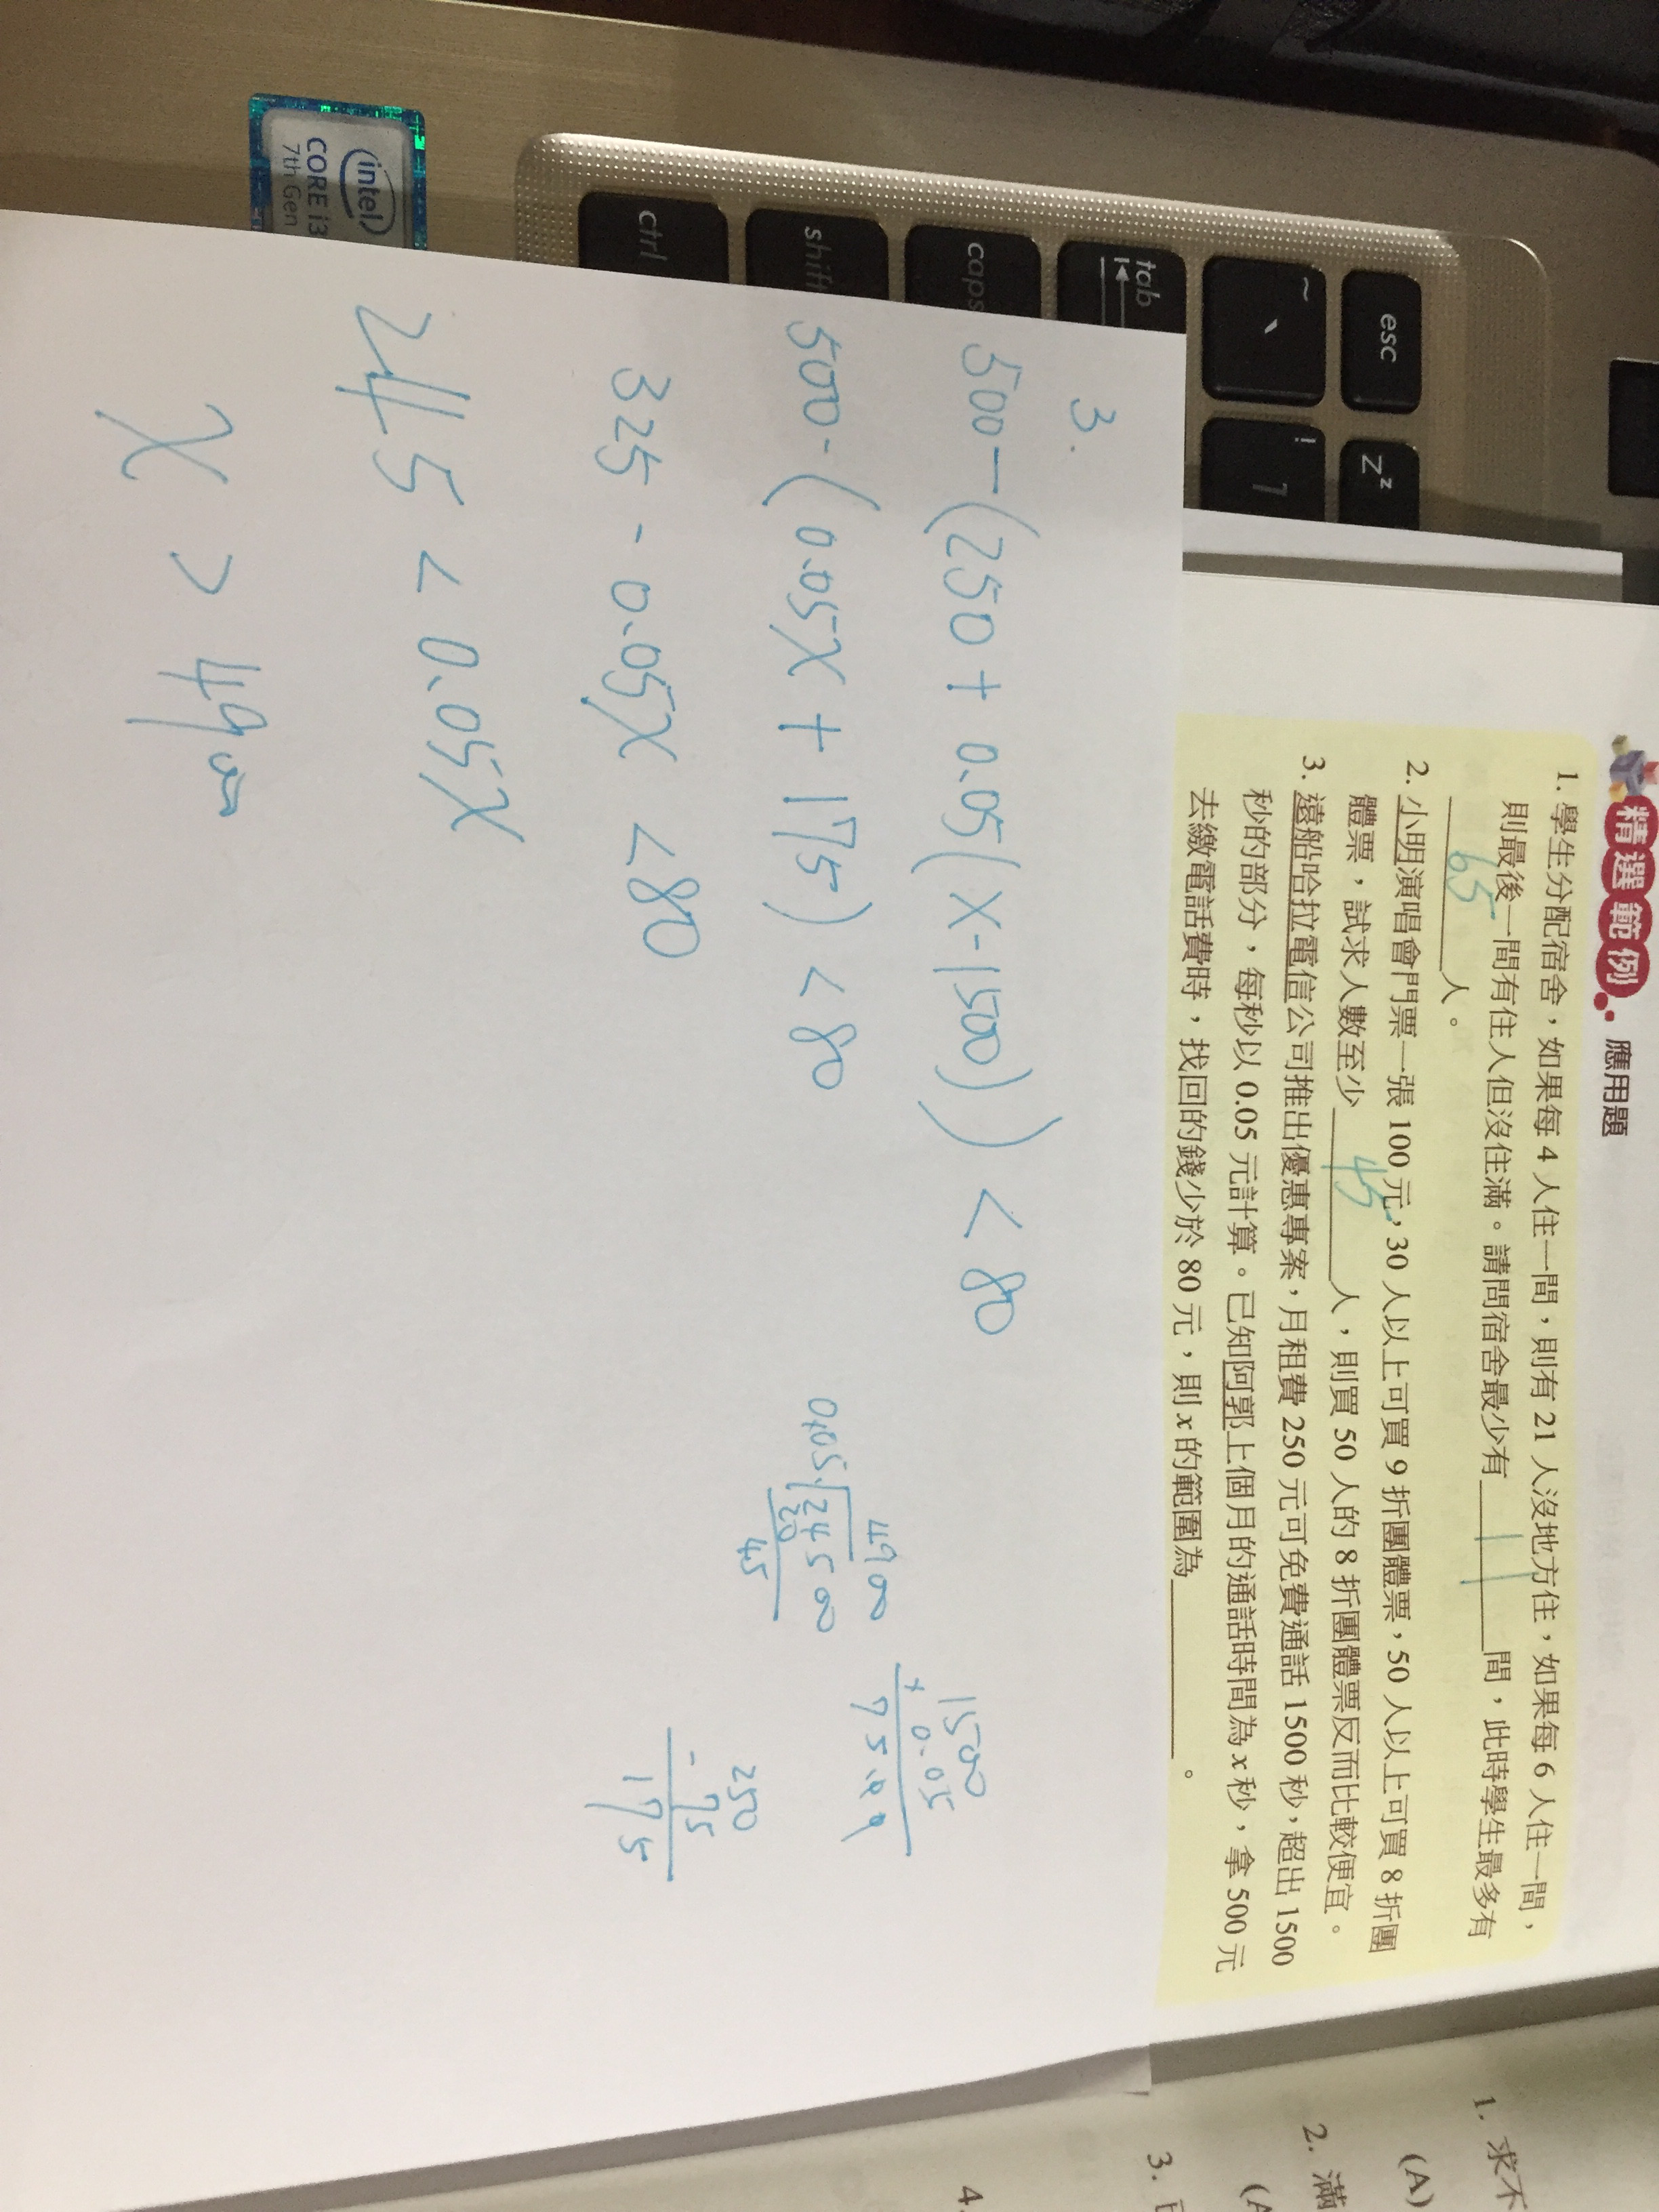 精選範例 應用題
1. 學生分配宿舍，如果每 4 人住一間，則有 21 人沒地方住，如果每 6 人住一間，
則最後一間有住人但沒住滿。請問宿舍最少有 11 間，此時學生最多有
65 人。
2. 小明演唱會門票一張 100 元，30 人以上可買 9 折團體票，50 人以上可買 8 折團
體票，試求人數至少 45 人，則買 50 人的 8 折團體票反而比較便宜。
3. 遠船哈拉電信公司推出優惠專案，月租費 250 元可免費通話 1500 秒，超出 1500
秒的部分，每秒以 0.05 元計算。已知阿郭上個月的通話時間為 x 秒，拿 500 元
去繳電話費時，找回的錢少於 80 元，則 x 的範圍為
。
3.
500-(250+0.05(x-1500))<80
500-(0.05x+175)<80
325-0.05x<80
245<0.05x
x>4900
4900
24500
20
45
1500
× 0.05
75.00
250
- 75
175
esc
zᶻ
~
、
!
1
tab
caps
shift
ctrl
intel
CORE i3
7th Gen
1. 求不
(A)
2. 滿
(A
3.
4.